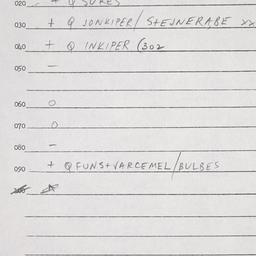 020 - + Q SUKES
030 + Q JONKIPER/STEJNERABE XX
040 + Q INKIPER (302
050 -
060 O
070 O
080 -
090 + Q FUNS+VARCEMEL/BULBES